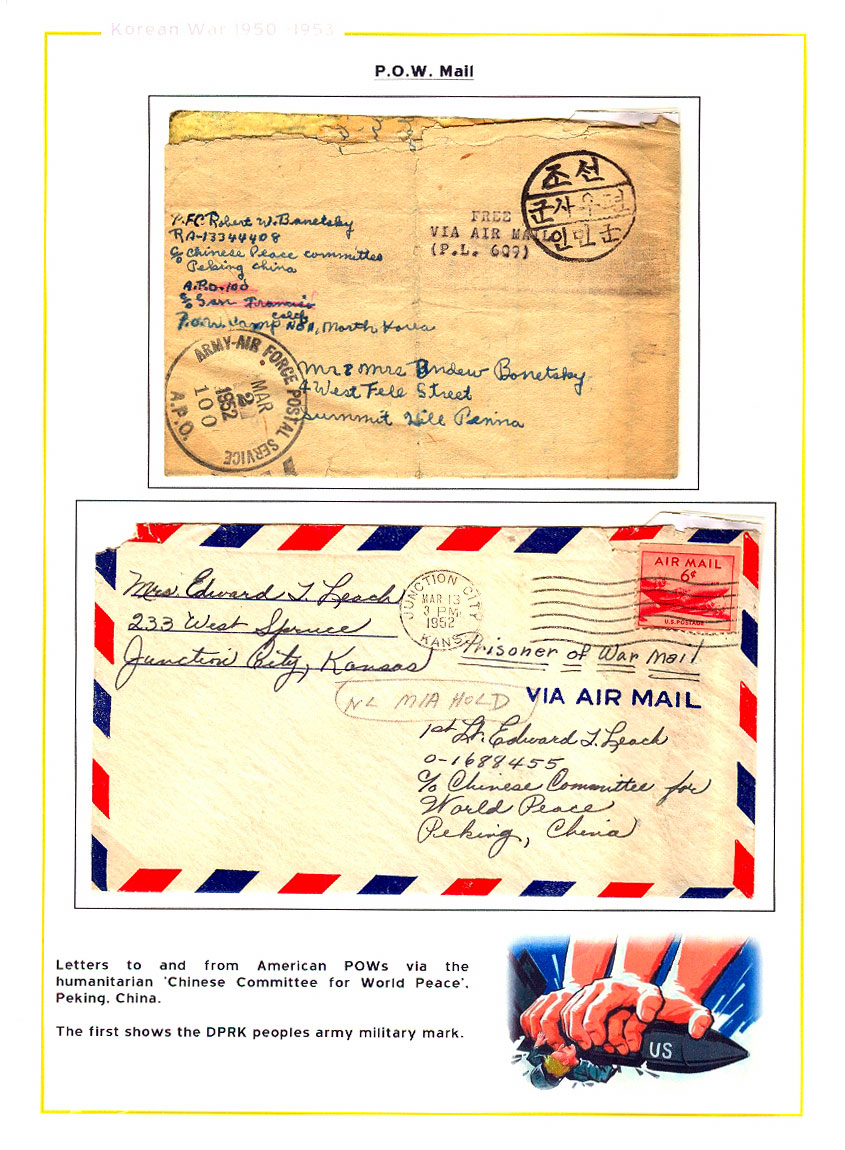 Korean War 1950 - 1953
P.O.W. Mail
조선
군사우편
인민군
FREE
VIA AIR MAIL
(P.L. 609)
P.F.C. Robert W. Bonetsky
RA-13344408
c/o Chinese Peace committee
Peking China
A.P.O. 100
c/o San Francisco
Calif
P.O.W. Camp No 1, North Korea
ARMY-AIR FORCE POSTAL SERVICE
MAR
1952
100
A.P.O.
Mr & Mrs Andew Bonetsky
4 West Fell Street
Summit Hill Penna
Mrs. Edward T. Leach
233 West Spruce
Junction City, Kansas
JUNCTION CITY
MAR 13
3 PM
1952
KANS.
AIR MAIL
6¢
U.S. POSTAGE
Prisoner of War Mail
NL MIA HOLD
VIA AIR MAIL
1st Lt. Edward T. Leach
O-1688455
c/o Chinese Committee for
World Peace
Peking, China
Letters to and from American POWs via the
humanitarian 'Chinese Committee for World Peace',
Peking, China.
The first shows the DPRK peoples army military mark.
US